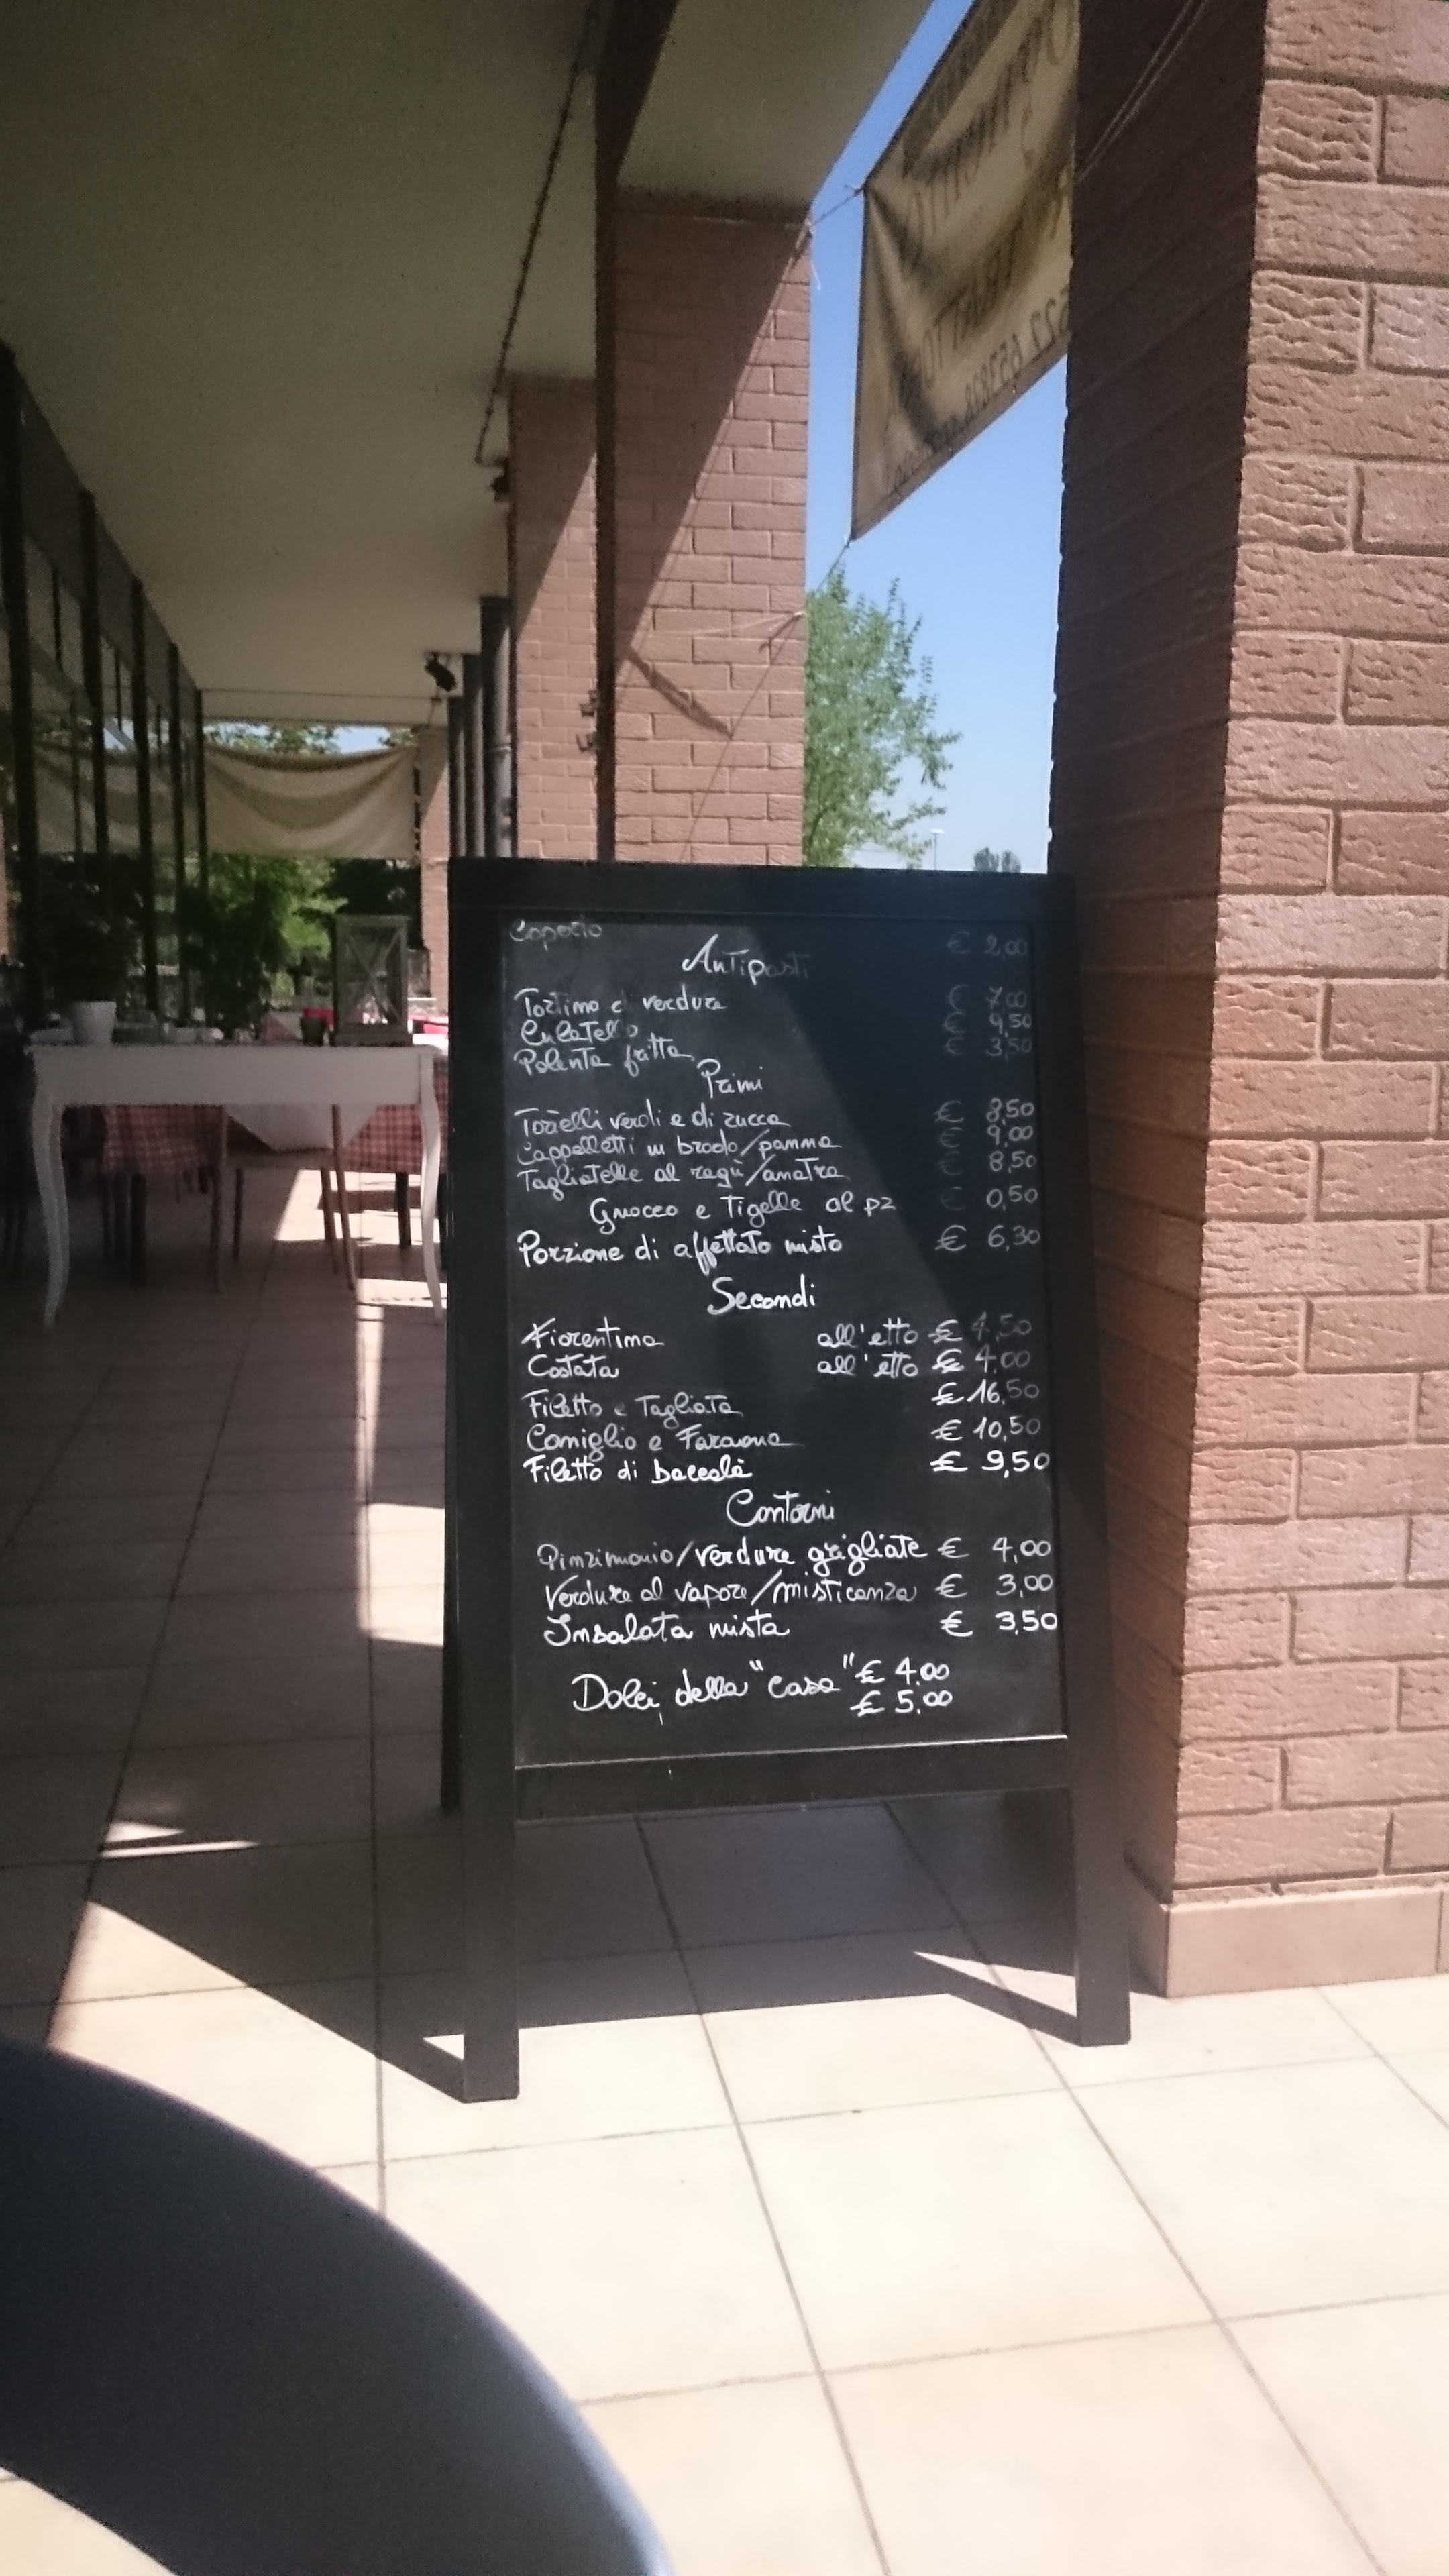 Coperto € 2,00
Antipasti
Tortino di verdura € 7,00
Culatello € 9,50
Polenta fritta € 3,50
Primi
Tortelli verdi e di zucca € 8,50
Cappelletti in brodo/panna € 9,00
Tagliatelle al ragù/anatra € 8,50
Gnocco e Tigelle al pz € 0,50
Porzione di affettato misto € 6,30
Secondi
Fiorentina all'etto € 4,50
Costata all'etto € 4,00
Filetto e Tagliata € 16,50
Coniglio e Faraona € 10,50
Filetto di baccalà € 9,50
Contorni
Pinzimonio/verdure grigliate € 4,00
Verdure al vapore/misticanza € 3,00
Insalata mista € 3,50
Dolci della "casa" € 4,00
€ 5,00